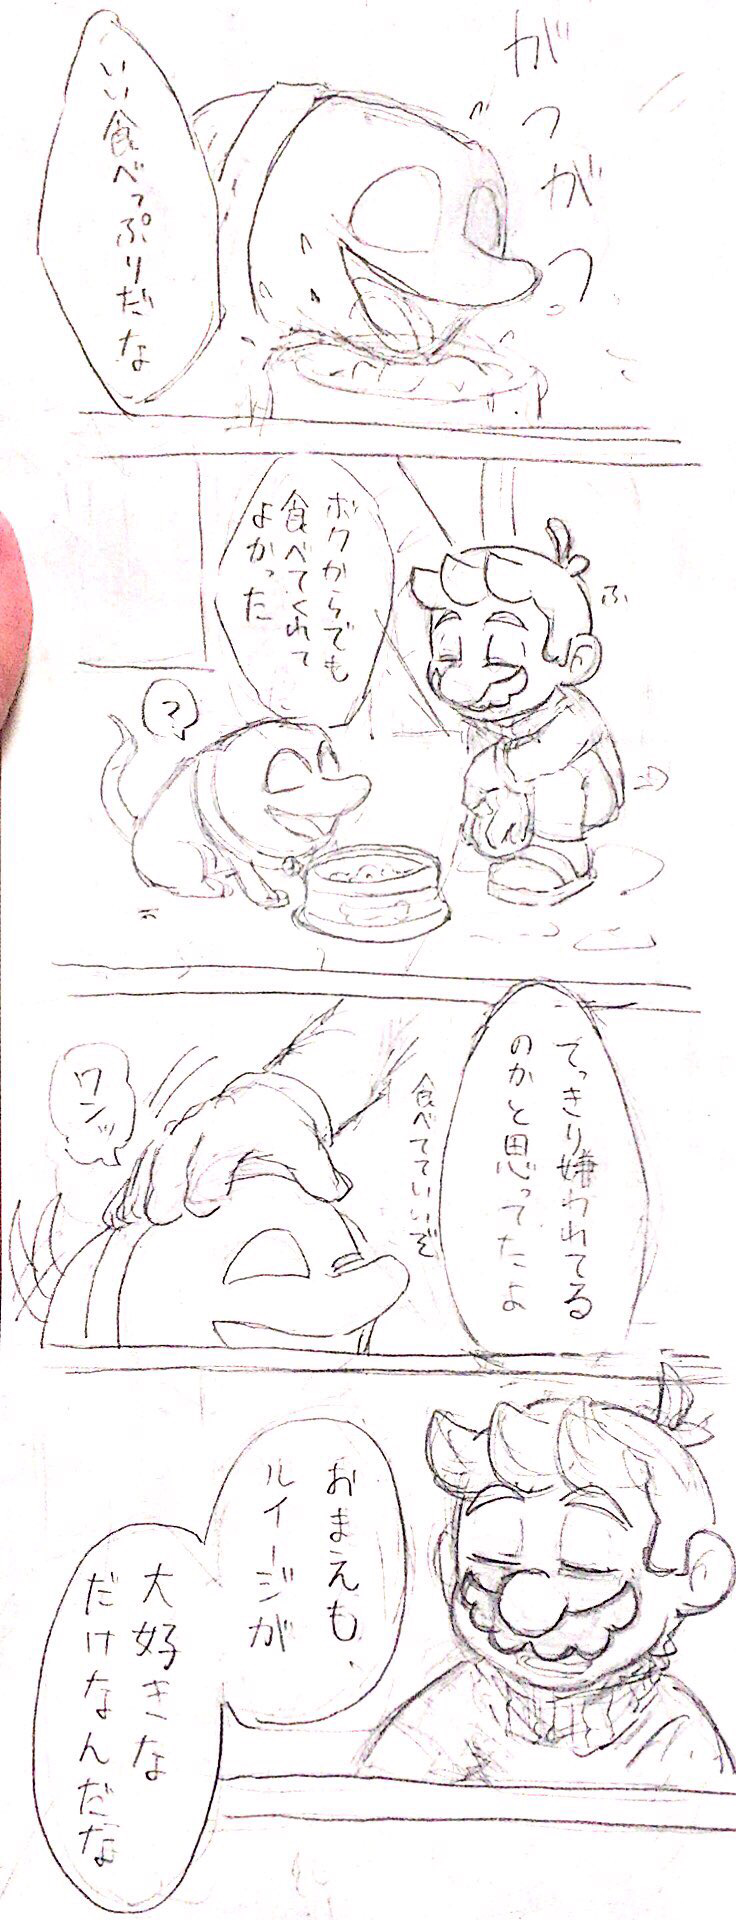 がつがつ
いい食べっぷりだな
ふ
ボクからでも
食べてくれて
よかった
?
てっきり嫌われてる
のかと思ってたよ
食べてていいぞ
ワンッ
おまえも、
ルイージが
大好きな
だけなんだな